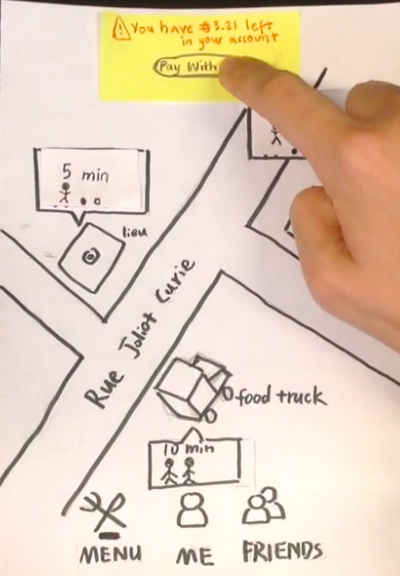 You have $3.21 left
in your account
Pay With
5 min
lieu
Rue Joliot Curie
food truck
10 min
MENU
ME
FRIENDS